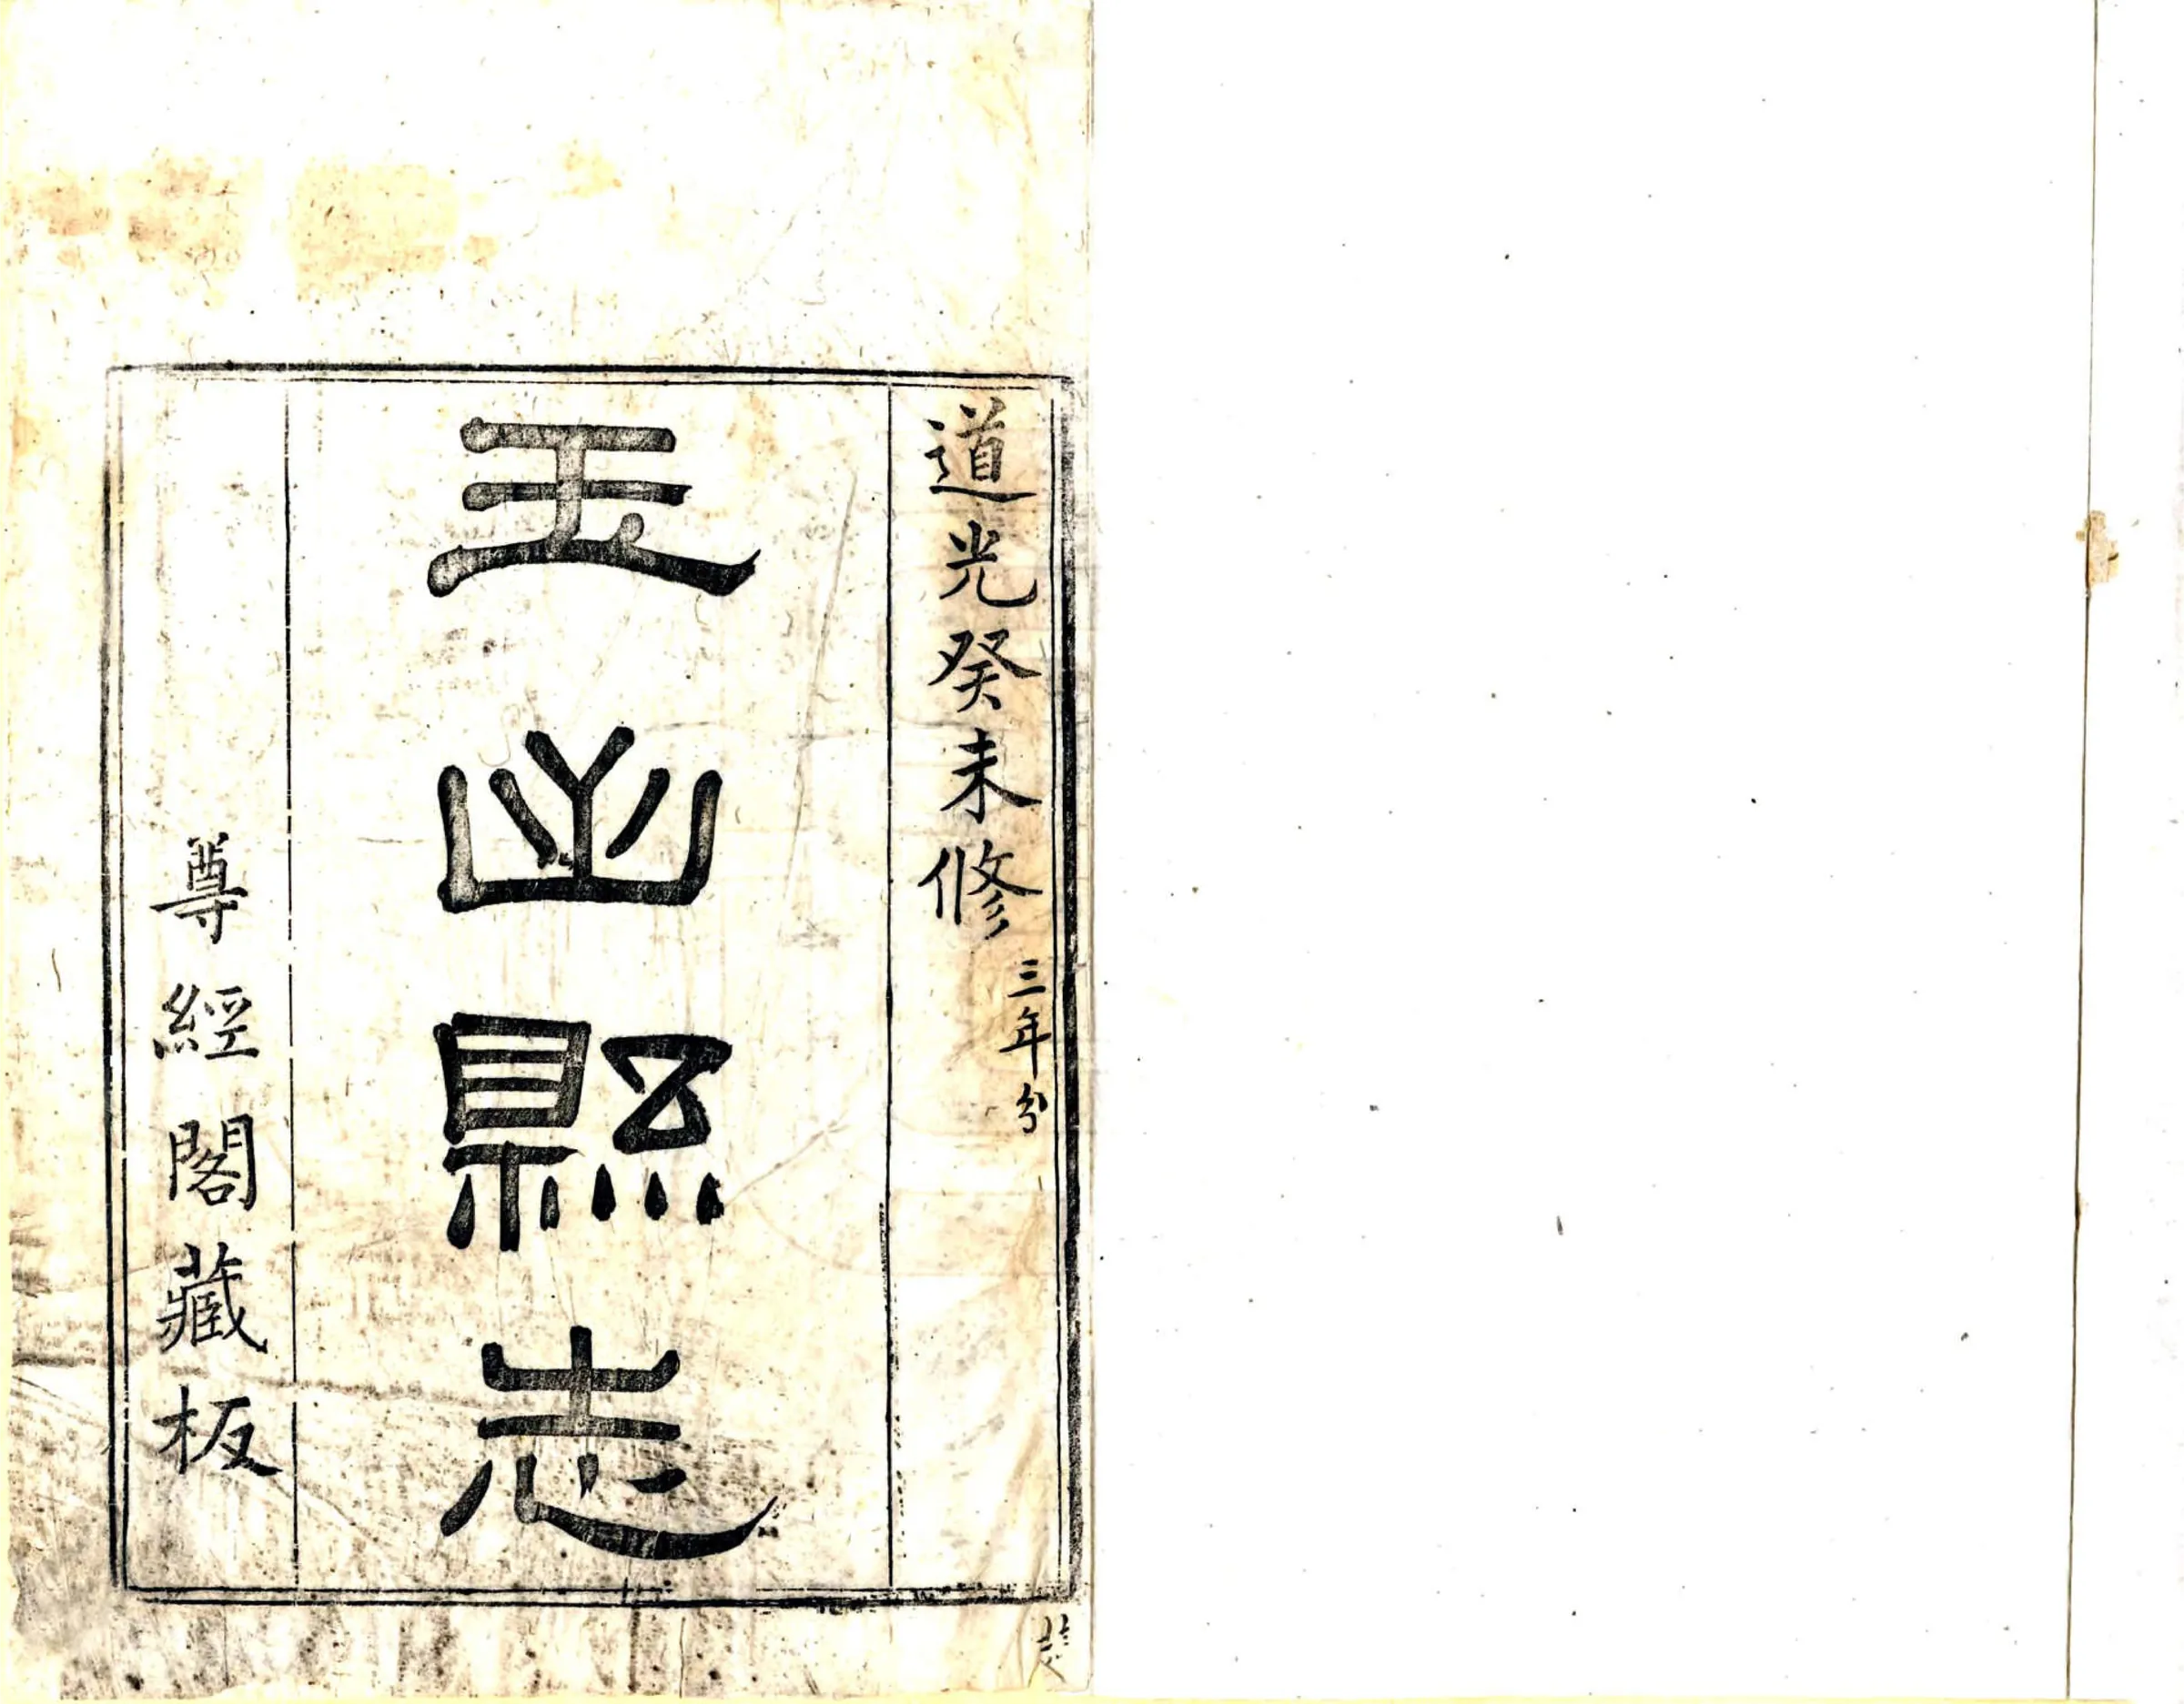 道光癸未修
三年分
玉山縣志
尊經閣藏板